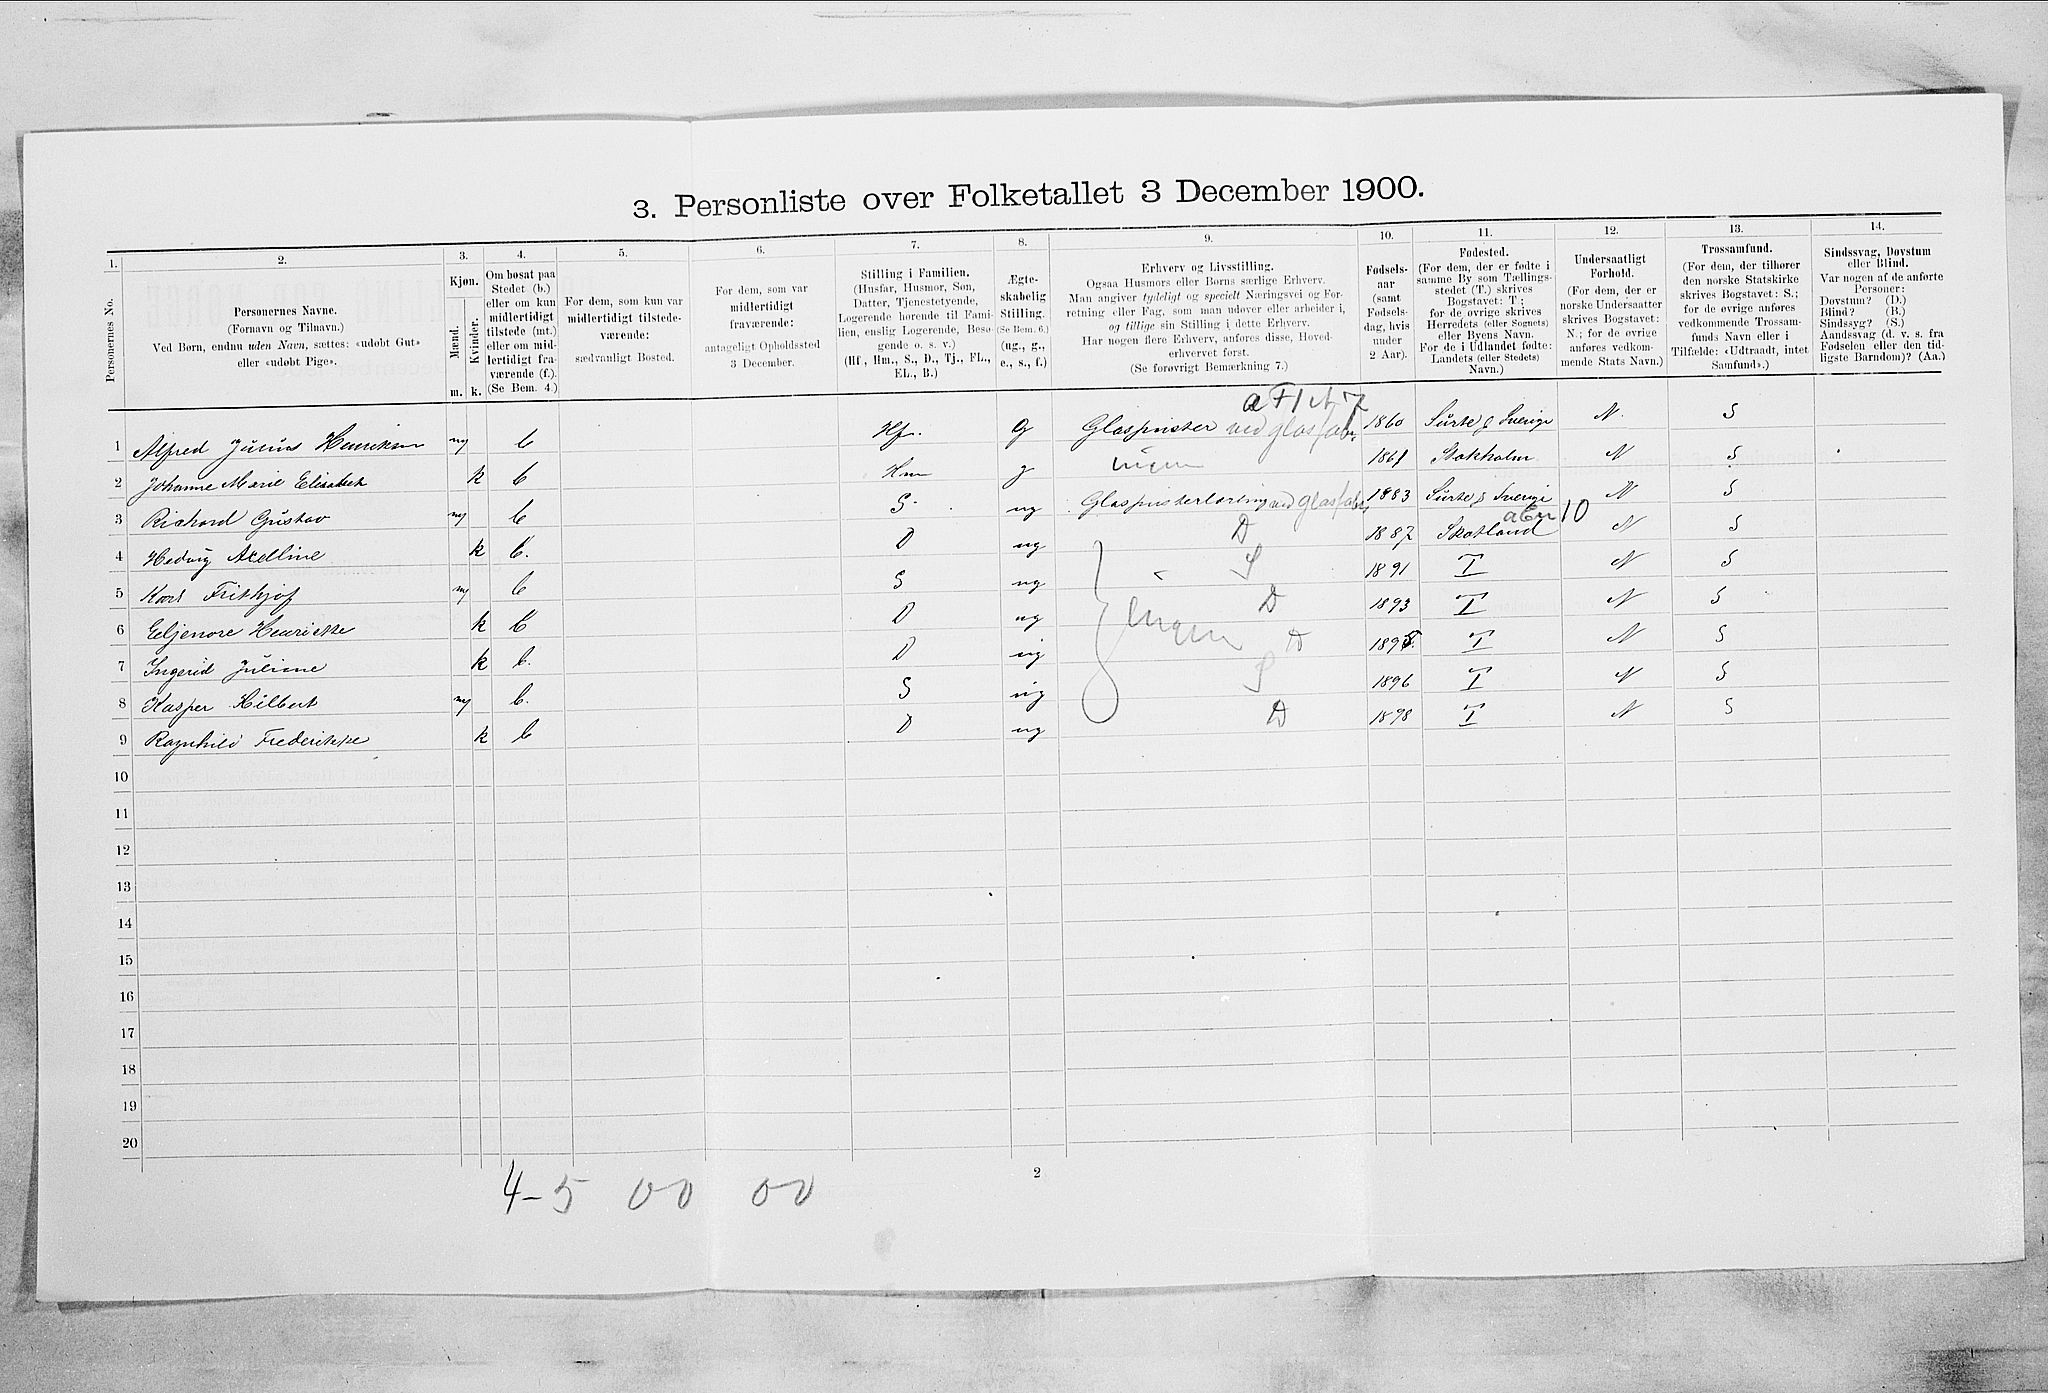 3. Personliste over Folketallet 3 December 1900.
1. 2. 3. 4. 5. 6. 7. 8. 9. 10. 11. 12. 13. 14.
Personernes No.
Personernes Navne.
(Fornavn og Tilnavn.)
Ved Børn, endnu uden Navn, sættes: «udøbt Gut»
eller «udøbt Pige».
Kjøn.
Mænd.
Kvinder.
m. k.
Om bosat paa
Stedet (b.)
eller om kun
midlertidigt
tilstede (mt.)
eller om mid-
lertidigt fra-
værende (f.).
(Se Bem. 4.)
For dem, som kun var
midlertidigt tilstede-
værende:
sædvanligt Bosted.
For dem, som var
midlertidigt
fraværende:
antageligt Opholdssted
3 December.
Stilling i Familien.
(Husfar, Husmor, Søn,
Datter, Tjenestetyende,
Logerende hørende til Fami-
lien, enslig Logerende, Besø-
gende o. s. v.)
(Hf., Hm., S., D., Tj., FL.,
EL., B.)
Ægte-
skabelig
Stilling.
(Se Bem. 6.)
(ug., g.,
e., s., f.)
Erhverv og Livsstilling.
Ogsaa Husmors eller Børns særlige Erhverv.
Man angiver tydeligt og specielt Næringsvei og For-
retning eller Fag, som man udøver eller arbeider i,
og tillige sin Stilling i dette Erhverv.
Har nogen flere Erhverv, anføres disse, Hoved-
erhvervet først.
(Se forøvrigt Bemærkning 7.)
Fødsels-
aar
(samt
Fødsels-
dag, hvis
under
2 Aar).
Fødested.
(For dem, der er fødte i
samme By som Tællings-
stedet (T.) skrives
Bogstavet: T;
for de øvrige skrives
Herredets (eller Sognets)
eller Byens Navn.
For de i Udlandet fødte:
Landets (eller Stedets)
Navn.)
Undersaatligt
Forhold.
(For dem, der er
norske Undersaatter
skrives Bogstavet:
N.; for de øvrige
anføres vedkom-
mende Stats Navn.)
Trossamfund.
(For dem, der tilhører
den norske Statskirke
skrives Bogstavet: S.;
for de øvrige anføres
vedkommende Trossam-
funds Navn eller i
Tilfælde: «Udtraadt, intet
Samfund».)
Sindssvag, Døvstum
eller Blind.
Var nogen af de anførte
Personer:
Døvstum? (D.)
Blind? (B.)
Sindssyg? (S.)
Aandssvag (d. v. s. fra
Fødselen eller den tid-
ligste Barndom)? (Aa.)
1 Alfred Julius Henriksen m b Hf. G Glaspuster ved glasfabr. 1860 Sürte i Sverige N. S
2 Johanne Marie Elisabeth k b Hm g ingen 1861 Stokholm N S
3 Richard Gustav m b S. ug Glaspusterlærling ved glasfabr. 1883 Sürte i Sverige N S
4 Hedvig Axelline k b. D ug D 1887 Skotland 10 N S
5 Karl Frithjof m b S ug S 1891 T N S
6 Henrikke k b D ug ingen D 1893 T N S
7 Ingerid Juliane k b. D ug D 1895 T N S
8 Kasper Hilbert m b. S ug S 1896 T N S
9 Ragnhild Frederikke k b D ug D 1898 T N S
10
11
12
13
14
15
16
17
18
19
20
2
4-5 00 00